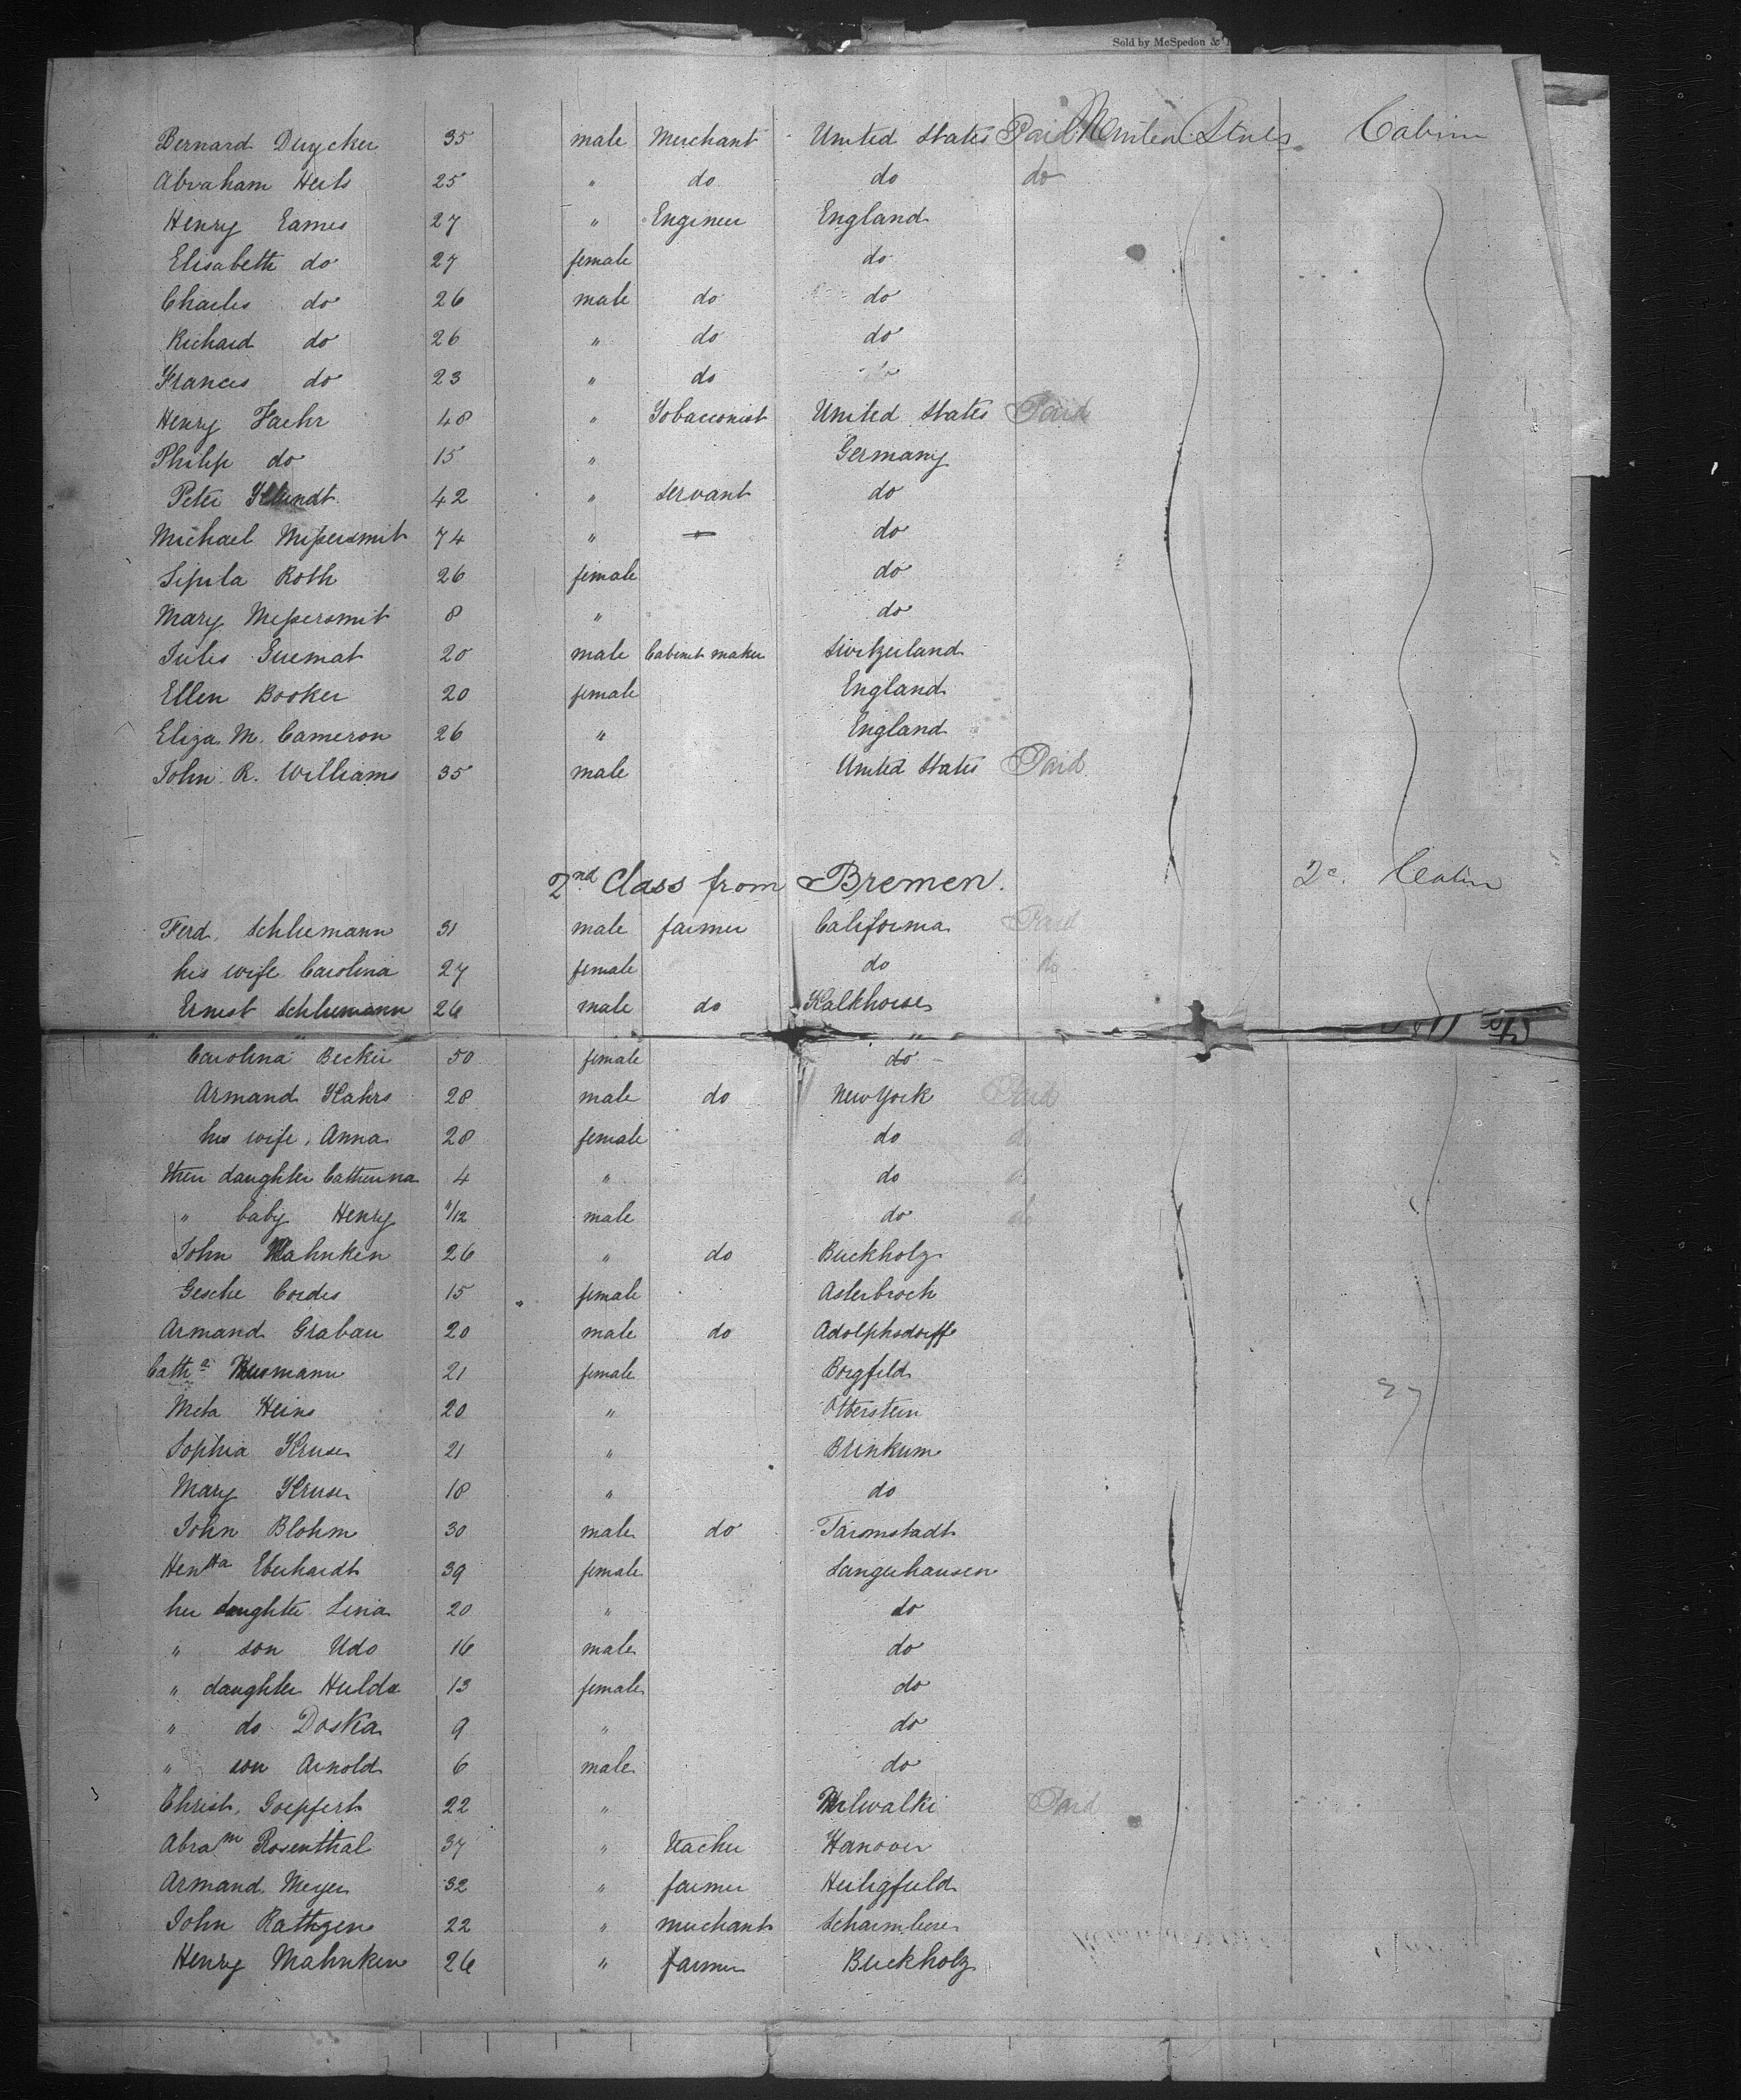 Sold by McSpedon &
Bernard Duycker 35 male Merchant United States Paid United States Cabin
Abraham Herts 25 " do do do
Henry Eames 27 " Engineer England
Elisabeth do 27 female do
Charles do 26 male do do
Richard do 26 " do do
Frances do 23 " do
Henry Faehr 48 " Tobacconist United States Paid
Philip do 15 " Germany
Peter 42 " Servant do
Michael Messersmit 74 " " do
Roth 26 female do
Mary Messersmit 8 " do
Jules 20 male Cabinet maker Switzerland
Ellen Booker 20 female England
Eliza M. Cameron 26 " England
John R. Williams 35 male United States Paid
2nd Class from Bremen. 2c. Cabin
Ferd. Schliemann 31 male farmer California Paid
his wife Carolina 27 female do do
Ernest Schliemann 26 male do Kalkhorse
Carolina Becker 50 female do
Armand Kahrs 28 male do New York Paid
his wife, Anna 28 female do do
their daughter Catherina 4 " do do
" baby Henry 11/12 male do do
John Mahnken 26 " do Buckholz
Gesche Cordes 15 female Asterbroch
Armand Grabau 20 male do Adolphsdorff
Catha 21 female Borgfeld
Meta Heins 20 " Otterstein
Sophia Kruse 21 " Brinkum
Mary Kruse 18 " do
John Blohm 30 male do Tarmstadt
Hentta Eberhardt 39 female Sangerhausen
her daughter Lina 20 " do
" son Udo 16 male do
" daughter Hulda 13 female do
" do Doska 9 " do
" son Arnold 6 male do
Christ. Goepfert 22 " Milwalki Paid
Abram Rosenthal 37 " teacher Hanover
Armand Meyer 32 " farmer Heiligfeld
John Rathgen 22 " merchant
Henry Mahnken 26 " farmer Buckholz